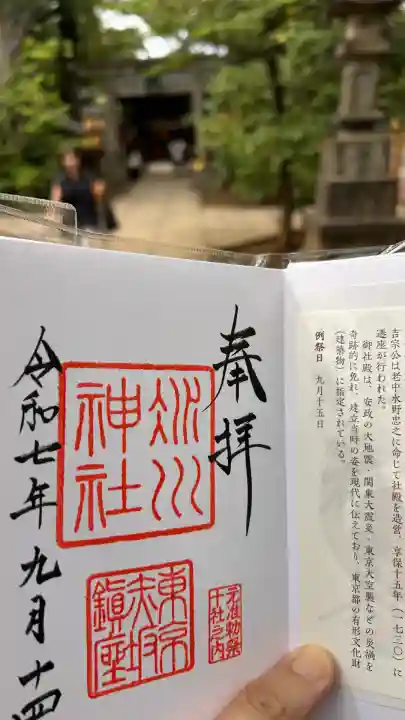 吉宗公は老中水野忠之に命じて社殿を造営、享保十五年(一七三〇)に
遷座が行われた。
御社殿は、安政の大地震・関東大震災・東京大空襲などの災禍を
奇跡的に免れ、建立当時の姿を現代に伝えており、東京都の有形文化財
(建築物)に指定されている。
例祭日 九月十五日
奉拝
氷川
神社
元准勅祭
十社之内
東京
赤坂
鎮座
令和七年九月十四